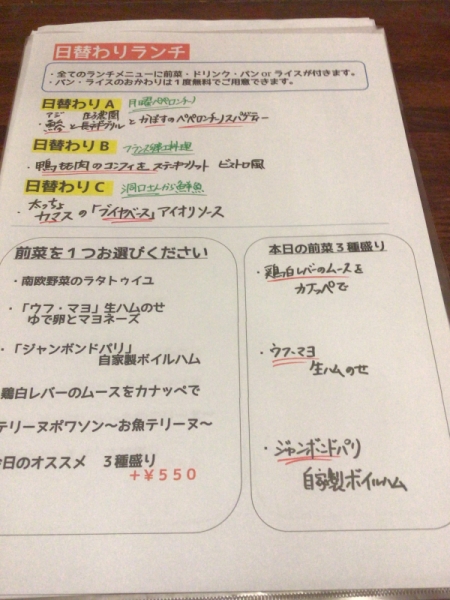 日替わりランチ
・全てのランチメニューに前菜・ドリンク・パン or ライスが付きます。
・パン・ライスのおかわりは１度無料でご用意できます。
日替わり A 月曜ペペロンチーノ
アジ
・鯵と長芋 とかぼすのペペロンチーノスパゲティー
日替わり B フランス郷土料理
・鴨もも肉のコンフィを ステキフリット ビストロ風
日替わり C 洞口さんから鮮魚
・太っちょ
カマスの「ブイヤベース」アイオリソース
前菜を１つお選びください
・南欧野菜のラタトゥイユ
・「ウフ・マヨ」生ハムのせ
ゆで卵とマヨネーズ
・「ジャンボンドパリ」
自家製ボイルハム
鶏白レバーのムースをカナッペで
テリーヌポワソン～お魚テリーヌ～
今日のオススメ　３種盛り
＋￥５５０
本日の前菜３種盛り
・鶏白レバーのムースを
カナッペで
・ウフ・マヨ
生ハムのせ
・ジャンボンドパリ
自家製ボイルハム